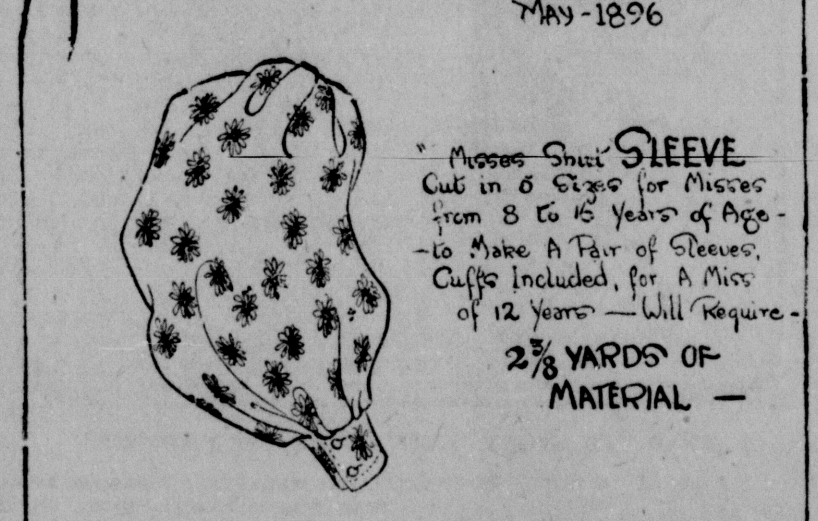 MAY-1896
" Misses Shirt SLEEVE
Cut in 5 Sizes for Misses
from 8 to 15 Years of Age -
- to Make A Pair of Sleeves,
Cuffs Included, for A Miss
of 12 Years — Will Require -
2 3/8 YARDS OF
MATERIAL —